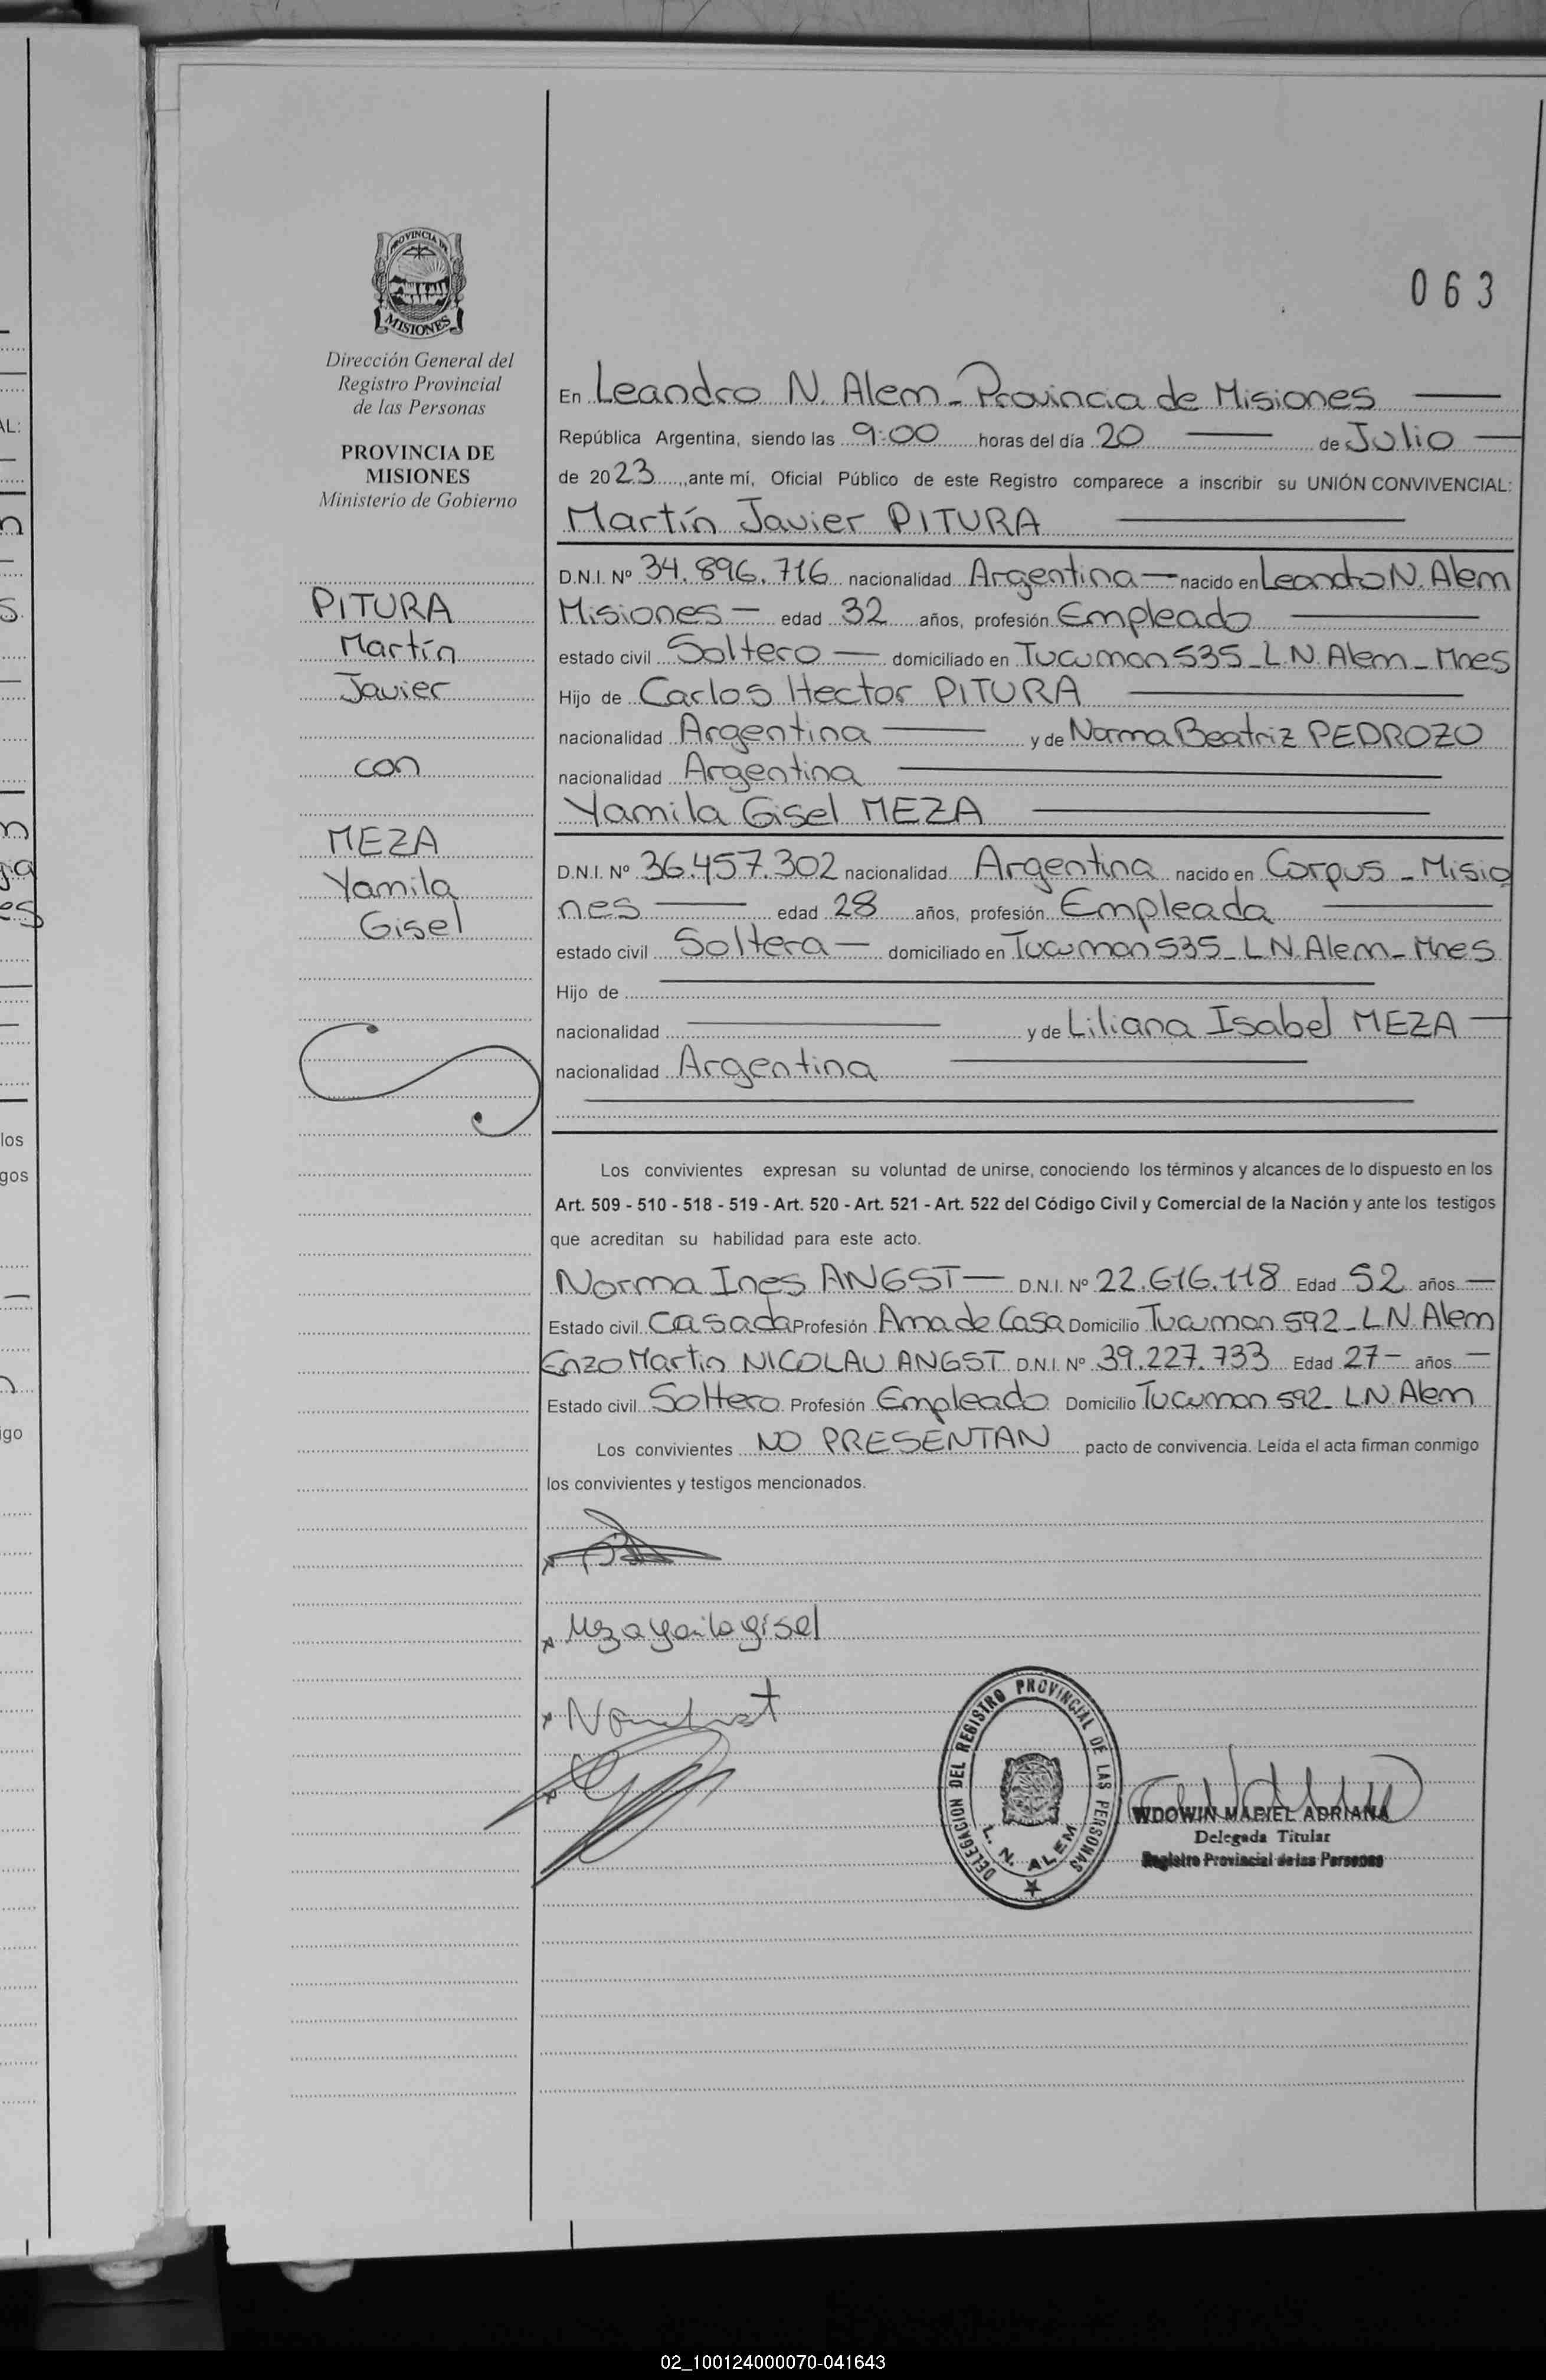 063
PROVINCIA DE
MISIONES
Dirección General del
Registro Provincial
de las Personas
PROVINCIA DE
MISIONES
Ministerio de Gobierno
PITURA
Martín
Javier
con
MEZA
Yamila
Gisel
En Leandro N. Alem - Provincia de Misiones
República Argentina, siendo las 9:00 horas del día 20 de Julio
de 2023, ante mí, Oficial Público de este Registro comparece a inscribir su UNIÓN CONVIVENCIAL:
Martín Javier PITURA
D.N.I. Nº 34.896.716 nacionalidad Argentina nacido en Leandro N. Alem
Misiones edad 32 años, profesión Empleado
estado civil Soltero domiciliado en Tucuman 535 - L.N. Alem - Mnes
Hijo de Carlos Hector PITURA
nacionalidad Argentina y de Norma Beatriz PEDROZO
nacionalidad Argentina
Yamila Gisel MEZA
D.N.I. Nº 36.457.302 nacionalidad Argentina nacido en Corpus - Misio
nes edad 28 años, profesión Empleada
estado civil Soltera domiciliado en Tucuman 535 - L.N. Alem - Mnes
Hijo de
nacionalidad y de Liliana Isabel MEZA
nacionalidad Argentina
Los convivientes expresan su voluntad de unirse, conociendo los términos y alcances de lo dispuesto en los
Art. 509 - 510 - 518 - 519 - Art. 520 - Art. 521 - Art. 522 del Código Civil y Comercial de la Nación y ante los testigos
que acreditan su habilidad para este acto.
Norma Ines ANGST D.N.I. Nº 22.616.118 Edad 52 años
Estado civil Casada Profesión Ama de Casa Domicilio Tucuman 592 - L.N. Alem
Enzo Martin NICOLAU ANGST D.N.I. Nº 39.227.733 Edad 27 años
Estado civil Soltero Profesión Empleado Domicilio Tucuman 592 - L.N. Alem
Los convivientes NO PRESENTAN pacto de convivencia. Leída el acta firman conmigo
los convivientes y testigos mencionados.
Meza yamila gisel
DELEGACION DEL REGISTRO PROVINCIAL DE LAS PERSONAS
L. N. ALEM
WDOWIN MARIEL ADRIANA
Delegada Titular
Registro Provincial de las Personas
02_100124000070-041643